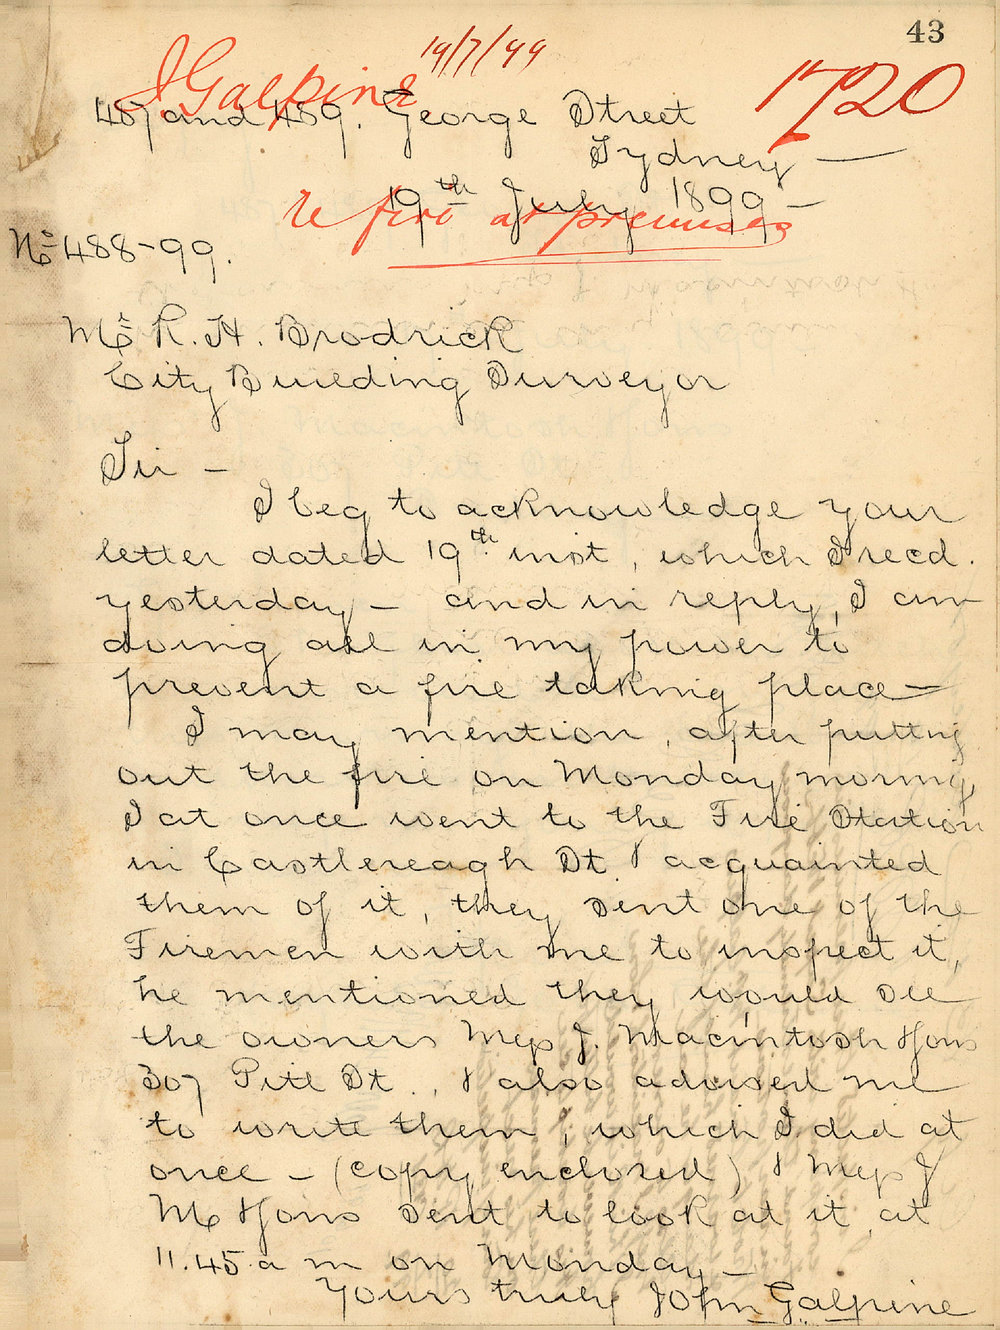 43
19/7/99
J Galpine
1720
487 and 489. George Street
Sydney —
19th July 1899 —
re fire at premises
No 488-99.
Mr R. H. Brodrick
City Building Surveyor
Sir —
I beg to acknowledge your
letter dated 19th inst, which I recd.
yesterday — and in reply, I am
doing all in my power to
prevent a fire taking place —
I may mention, after putting
out the fire on Monday morning,
I at once went to the Fire Station
in Castlereagh St. & acquainted
them of it, they sent one of the
Firemen with me to inspect it,
he mentioned they would see
the owners Mess J. Macintosh & Sons
307 Pitt St., & also advised me
to write them, which I did at
once — (copy enclosed) & Mess J
M & Sons sent to look at it at
11.45 a m on Monday —
Yours truly John Galpine